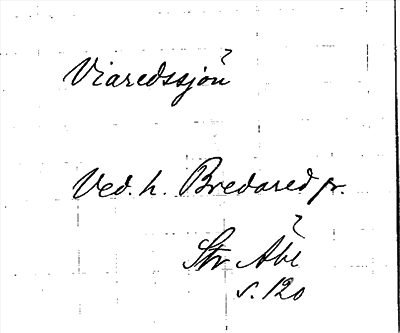 Viaredssjön
Ved. h. Bredared fr.
Str Åbe
s. 120